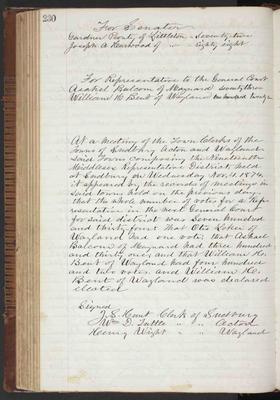 230
For Senator
Gardner Prouty of Littleton - Seventy two
Joseph A Harwood of " Eighty eight
For Representative to the General Court
Asahel Balcom of Maynard seventy three
William H. Bent of Wayland one hundred twenty
At a meeting of the Town Clerks of the
towns of Sudbury Acton and Wayland
said Town composing the Nineteenth
Middlesex Representative District held
at Sudbury on Wednesday Nov. 4. 1874.
it appeared by the records of meetings in
said towns held on the previous day,
that the whole number of votes for a Rep-
resentative in the next General Court
for said district was Seven hundred
and thirty four That Otis Loker of
Wayland had one vote, that Asahel
Balcom of Maynard had three hundred
and thirty one, and that William H.
Bent of Wayland had four hundred
and two votes and William H.
Bent of Wayland was declared
elected
Signed
J. S. Hunt Clerk of Sudbury
Wm D. Tuttle " " Acton
Henry Wight " " Wayland